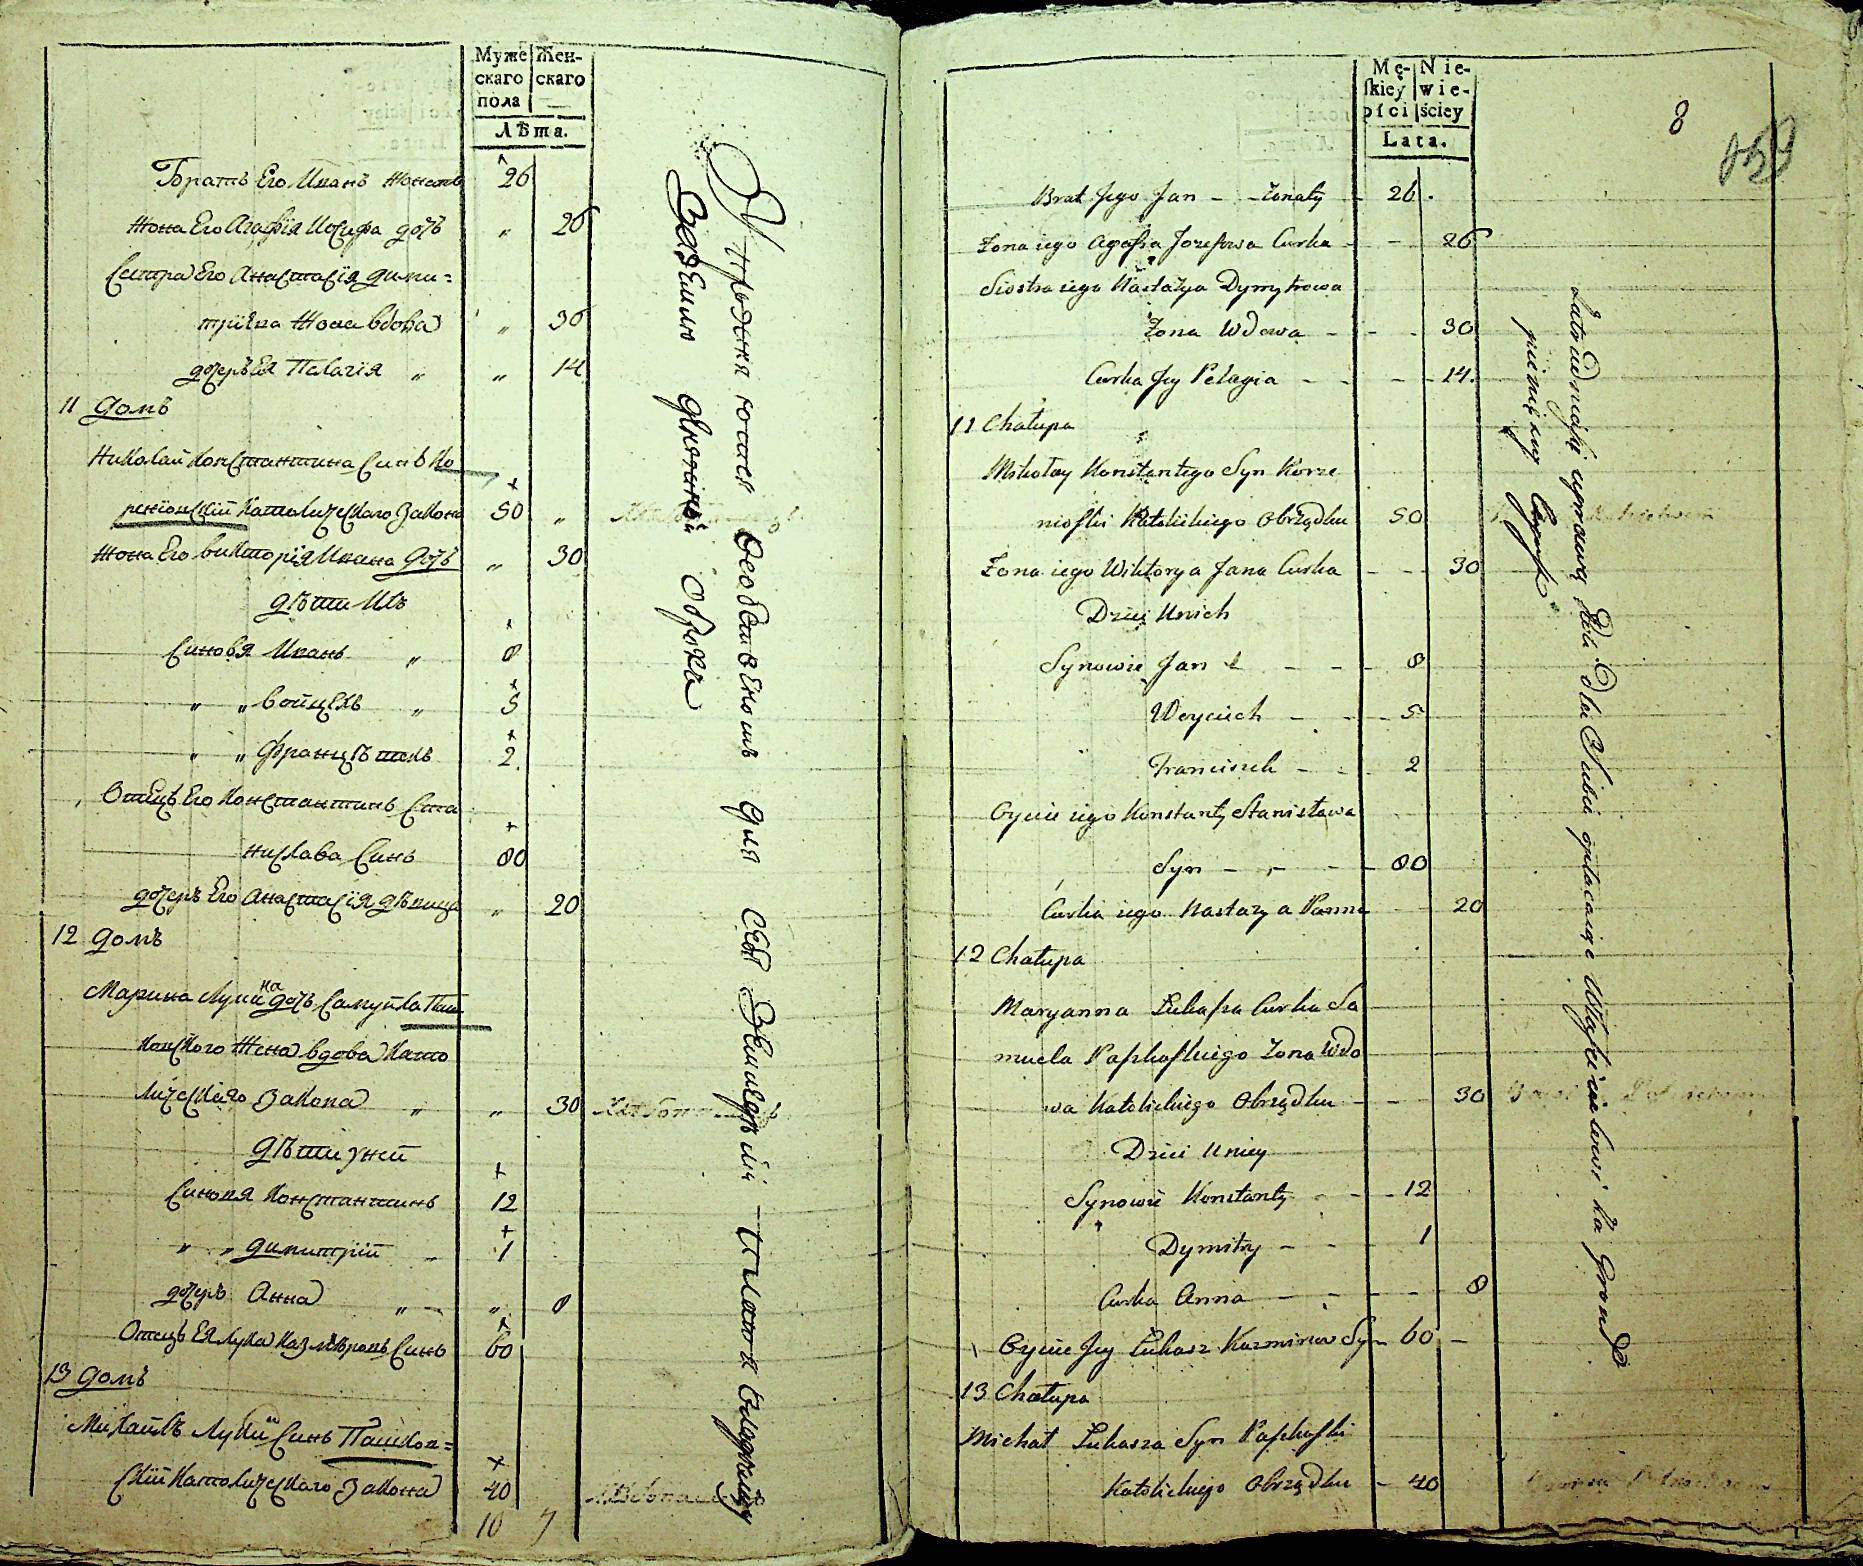 Муже Жен-
скаго скаго
пола
Лѣта.
Братъ Его Иванъ Жонатъ 26
Жона Его Агафія Иосифа дочъ „ 26
Сестра Его Анастасія Дими=
тріева Жона вдова „ 30
дочерь Ея Палагія „ „ 14
11 домъ
Николай Константина Синъ Ко
реніовскій Католическаго Закона 50 „
Жона Его Викторія Ивана дочъ „ 30
дѣти Ихъ
Синовя Иванъ „ 8
„ „ Войцехъ „ 5
„ „ Францѣшекъ 2
Отецъ Его Константинъ Ста
нислава Синъ 80
дочеръ Его Анастасія дѣвица „ 20
12 домъ
Марина Лукина дочъ Самуила Паш
ковского Жена вдова Като
лическаго Закона „ „ 30
дѣти уней
Синовя Константинъ 12
„ „ Димитрій 1
дочеръ Анна „ „ 8
Отецъ Ея Лука Казмѣровъ Синъ 60
13 домъ
Михаилъ Лукинъ Синъ Пашков=
скій Католическаго Закона 40
10 7
Упражняются Особственомъ для себя Земледѣліи платя владельцу
Заземлю денежный оброкъ
Mę- Nie-
ſkiey wie-
płci ściey
Lata.
8
Brat Jego Jan - - Żonaty - 26.
Żona iego Agafia Jozefowa Curka - - 26
Siostra iego Nastazya Dymytrowa
Żona Wdowa - - - 30
Curka Jey Pelagia - - - 14.
11 Chałupa
Mikołay Konstantego Syn Korze
nioſki Katolickiego Obrządku 50
Żona iego Wiktorya Jana Curka - - 30
Dzieci Unich
Synowie Jan - - - 8
Woyciech - - 5
Franciszek - - 2
Oyciec iego Konstanty Stanisława
Syn - - - - 80
Curka iego Nastazya Panna 20
12 Chałupa
Maryanna Łukaſza Curka Sa
muela Paſzkoſkiego Żona Wdo
wa Katolickiego Obrządku - - 30
Dzieci Uniey
Synowie Konstanty - - 12
Dymitry - - 1
Curka Anna - - - - 8
Oyciec Jey Łukasz Kazmirow Syn 60 -
13 Chałupa
Michał Łukasza Syn Paſzkoſki
Katolickiego Obrządku - 40
Zatrudniaią się uprawą Roli dla Siebie opłacaiąc Właſcicielowi za Grond
pieniężny Czynſz